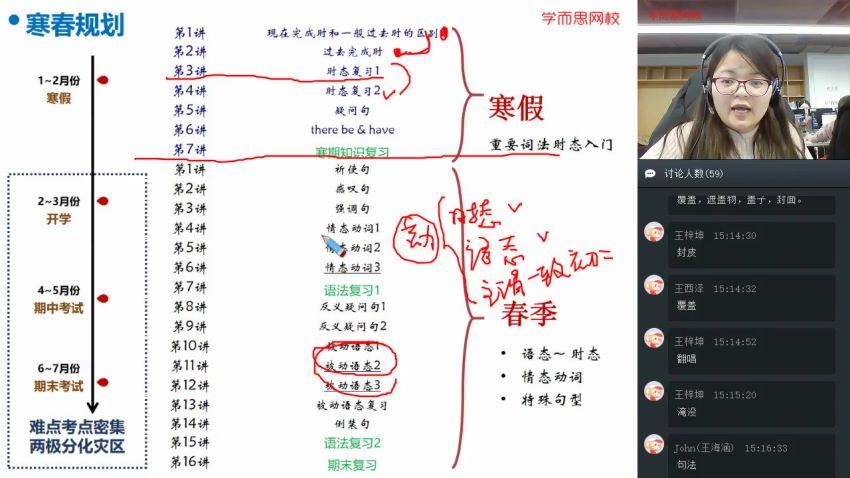 寒春规划
学而思网校
学而思网校
1~2月份
寒假
2~3月份
开学
4~5月份
期中考试
6~7月份
期末考试
难点考点密集
两极分化灾区
第1讲 现在完成时和一般过去时的区别
第2讲 过去完成时
第3讲 时态复习1
第4讲 时态复习2
第5讲 疑问句
第6讲 there be & have
第7讲 寒期知识复习
第1讲 祈使句
第2讲 感叹句
第3讲 强调句
第4讲 情态动词1
第5讲 情态动词2
第6讲 情态动词3
第7讲 语法复习1
第8讲 反义疑问句1
第9讲 反义疑问句2
第10讲 被动语态1
第11讲 被动语态2
第12讲 被动语态3
第13讲 被动语态复习
第14讲 倒装句
第15讲 语法复习2
第16讲 期末复习
寒假
重要词法时态入门
动
时态
语态
主谓一致
春季
• 语态~时态
• 情态动词
• 特殊句型
讨论人数(59)
覆盖，遮盖物，盖子，封面。
王梓坤 15:14:30
封皮
王西泽 15:14:32
覆盖
王梓坤 15:14:52
翻唱
王梓坤 15:15:20
淹没
John(王海涵) 15:16:33
句法